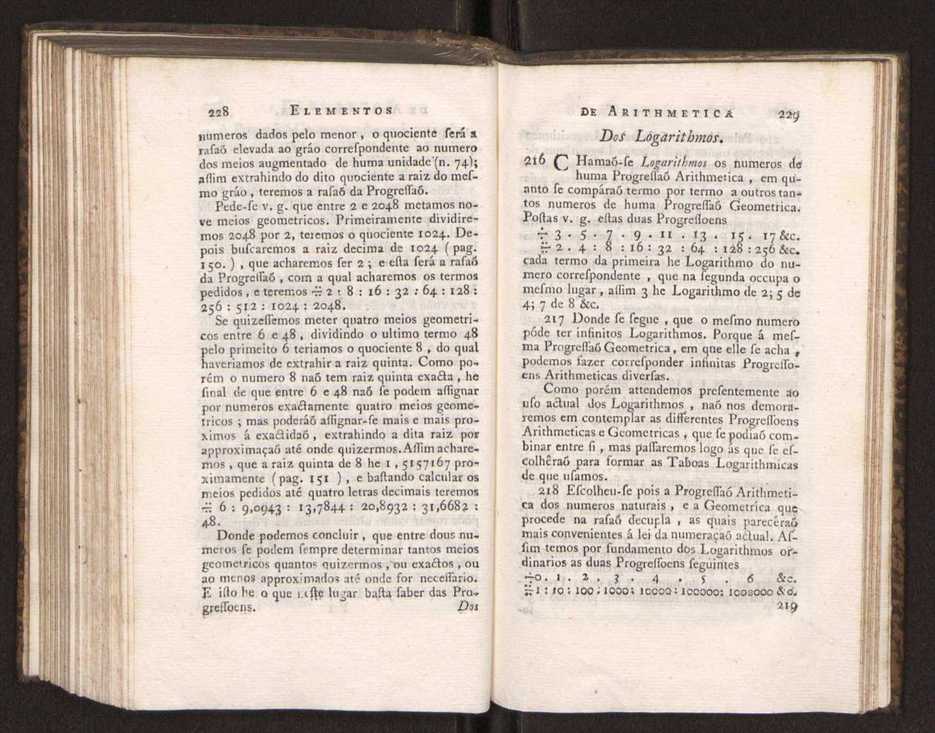 228 ELEMENTOS
numeros dados pelo menor , o quociente ſerá a
raſaõ elevada ao gráo correſpondente ao numero
dos meios augmentado de huma unidade (n. 74);
aſſim extrahindo do dito quociente a raiz do meſ-
mo gráo , teremos a raſaõ da Progreſſaõ.
Pede-ſe v. g. que entre 2 e 2048 metamos no-
ve meios geometricos. Primeiramente dividire-
mos 2048 por 2, teremos o quociente 1024. De-
pois buſcaremos a raiz decima de 1024 ( pag.
150. ) , que acharemos ſer 2 ; e eſta ſerá a raſaõ
da Progreſſaõ , com a qual acharemos os termos
pedidos , e teremos ∺ 2 : 8 : 16 : 32 : 64 : 128 :
256 : 512 : 1024 : 2048.
Se quizeſſemos meter quatro meios geometri-
cos entre 6 e 48 , dividindo o ultimo termo 48
pelo primeito 6 teriamos o quociente 8 , do qual
haveriamos de extrahir a raiz quinta. Como po-
rém o numero 8 naõ tem raiz quinta exacta , he
ſinal de que entre 6 e 48 naõ ſe podem aſſignar
por numeros exactamente quatro meios geome-
tricos ; mas poderáõ aſſignar-ſe mais e mais pro-
ximos á exactidaõ , extrahindo a dita raiz por
approximaçaõ até onde quizermos. Aſſim achare-
mos , que a raiz quinta de 8 he 1 , 5157167 pro-
ximamente ( pag. 151 ) , e baſtando calcular os
meios pedidos até quatro letras decimais teremos
∺ 6 : 9,0943 : 13,7844 : 20,8932 : 31,6682 :
48.
Donde podemos concluir , que entre dous nu-
meros ſe podem ſempre determinar tantos meios
geometricos quantos quizermos , ou exactos , ou
ao menos approximados até onde for neceſſario.
E iſto he o que neſte lugar baſta ſaber das Pro-
greſſoens. Dos
DE ARITHMETICA 229
Dos Logarithmos.
216 CHamaõ-ſe Logarithmos os numeros de
huma Progreſſaõ Arithmetica , em qu-
anto ſe comparaõ termo por termo a outros tan-
tos numeros de huma Progreſſaõ Geometrica.
Poſtas v. g. eſtas duas Progreſſoens
÷ 3 . 5 . 7 . 9 . 11 . 13 . 15 . 17 &c.
∺ 2 . 4 : 8 : 16 : 32 : 64 : 128 : 256 &c.
cada termo da primeira he Logarithmo do nu-
mero correſpondente , que na ſegunda occupa o
meſmo lugar , aſſim 3 he Logarithmo de 2; 5 de
4; 7 de 8 &c.
217 Donde ſe ſegue , que o meſmo numero
póde ter infinitos Logarithmos. Porque á meſ-
ma Progreſſaõ Geometrica , em que elle ſe acha ,
podemos fazer correſponder infinitas Progreſſo-
ens Arithmeticas diverſas.
Como porém attendemos preſentemente ao
uſo actual dos Logarithmos , naõ nos demora-
remos em contemplar as differentes Progreſſoens
Arithmeticas e Geometricas , que ſe podiaõ com-
binar entre ſi , mas paſſaremos logo ás que ſe eſ-
colhêraõ para formar as Taboas Logarithmicas
de que uſamos.
218 Eſcolheu-ſe pois a Progreſſaõ Arithmeti-
ca dos numeros naturais , e a Geometrica que
procede na raſaõ decupla , as quais parecêraõ
mais convenientes á lei da numeraçaõ actual. Aſ-
ſim temos por fundamento dos Logarithmos or-
dinarios as duas Progreſſoens ſeguintes
÷ 0 . 1 . 2 . 3 . 4 . 5 . 6 &c.
∺ 1 : 10 : 100 : 1000 : 10000 : 100000 : 1000000 &c.
219